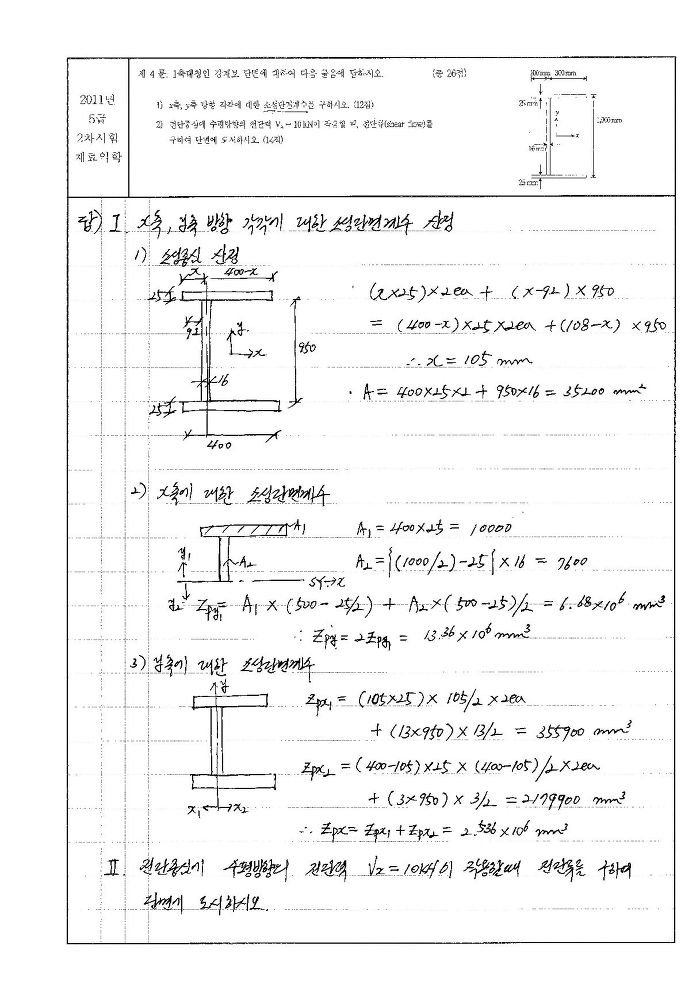 2011년
5급
2차시험
재료역학
제 4 문. 1축대칭인 강재보 단면에 대하여 다음 물음에 답하시오. (총 26점)
1) x축, y축 방향 각각에 대한 소성단면계수를 구하시오. (12점)
2) 전단중심에 수평방향의 전단력 Vₓ = 10 kN이 작용할 때, 전단류(shear flow)를
구하여 단면에 도시하시오. (14점)
100mm 300mm
25mm
y
x
1,000mm
16mm
25mm
답) Ⅰ. x축, y축 방향 각각에 대한 소성단면계수 산정
1) 소성중심 산정
x 400-x
25
92
y
x
950
16
25
400
· (x×25)×2ea + (x-92)×950
= (400-x)×25×2ea + (108-x)×950
∴ x = 105 mm
· A = 400×25×2 + 950×16 = 35200 mm²
2) x축에 대한 소성단면계수
A₁
A₂
y₁
y₂
x
A₁ = 400×25 = 10000
A₂ = {(1000/2)-25}×16 = 7600
Zpy₁ = A₁ × (500 - 25/2) + A₂×(500-25)/2 = 6.68×10⁶ mm³
∴ Zpy = 2Zpy₁ = 13.36×10⁶ mm³
3) y축에 대한 소성단면계수
y
x₁ x₂
Zpx₁ = (105×25)× 105/2 ×2ea
+ (13×950)× 13/2 = 355900 mm³
Zpx₂ = (400-105)×25 × (400-105)/2×2ea
+ (3×950)× 3/2 = 2179900 mm³
∴ Zpx = Zpx₁ + Zpx₂ = 2.536×10⁶ mm³
Ⅱ 전단중심에 수평방향의 전단력 Vx = 10kN이 작용할때 전단류를 구하여
단면에 도시하시오.